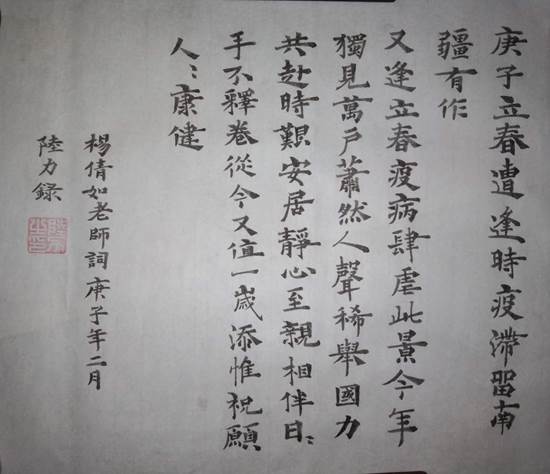 庚子立春遭逢時疫滯留南
疆有作
又逢立春疫病肆虐此景今年
獨見萬戶蕭然人聲稀舉國力
共赴時艱安居靜心至親相伴日〻
手不釋卷從今又值一歲添惟祝願
人〻康健
楊倩如老師詞庚子年二月
陸力錄